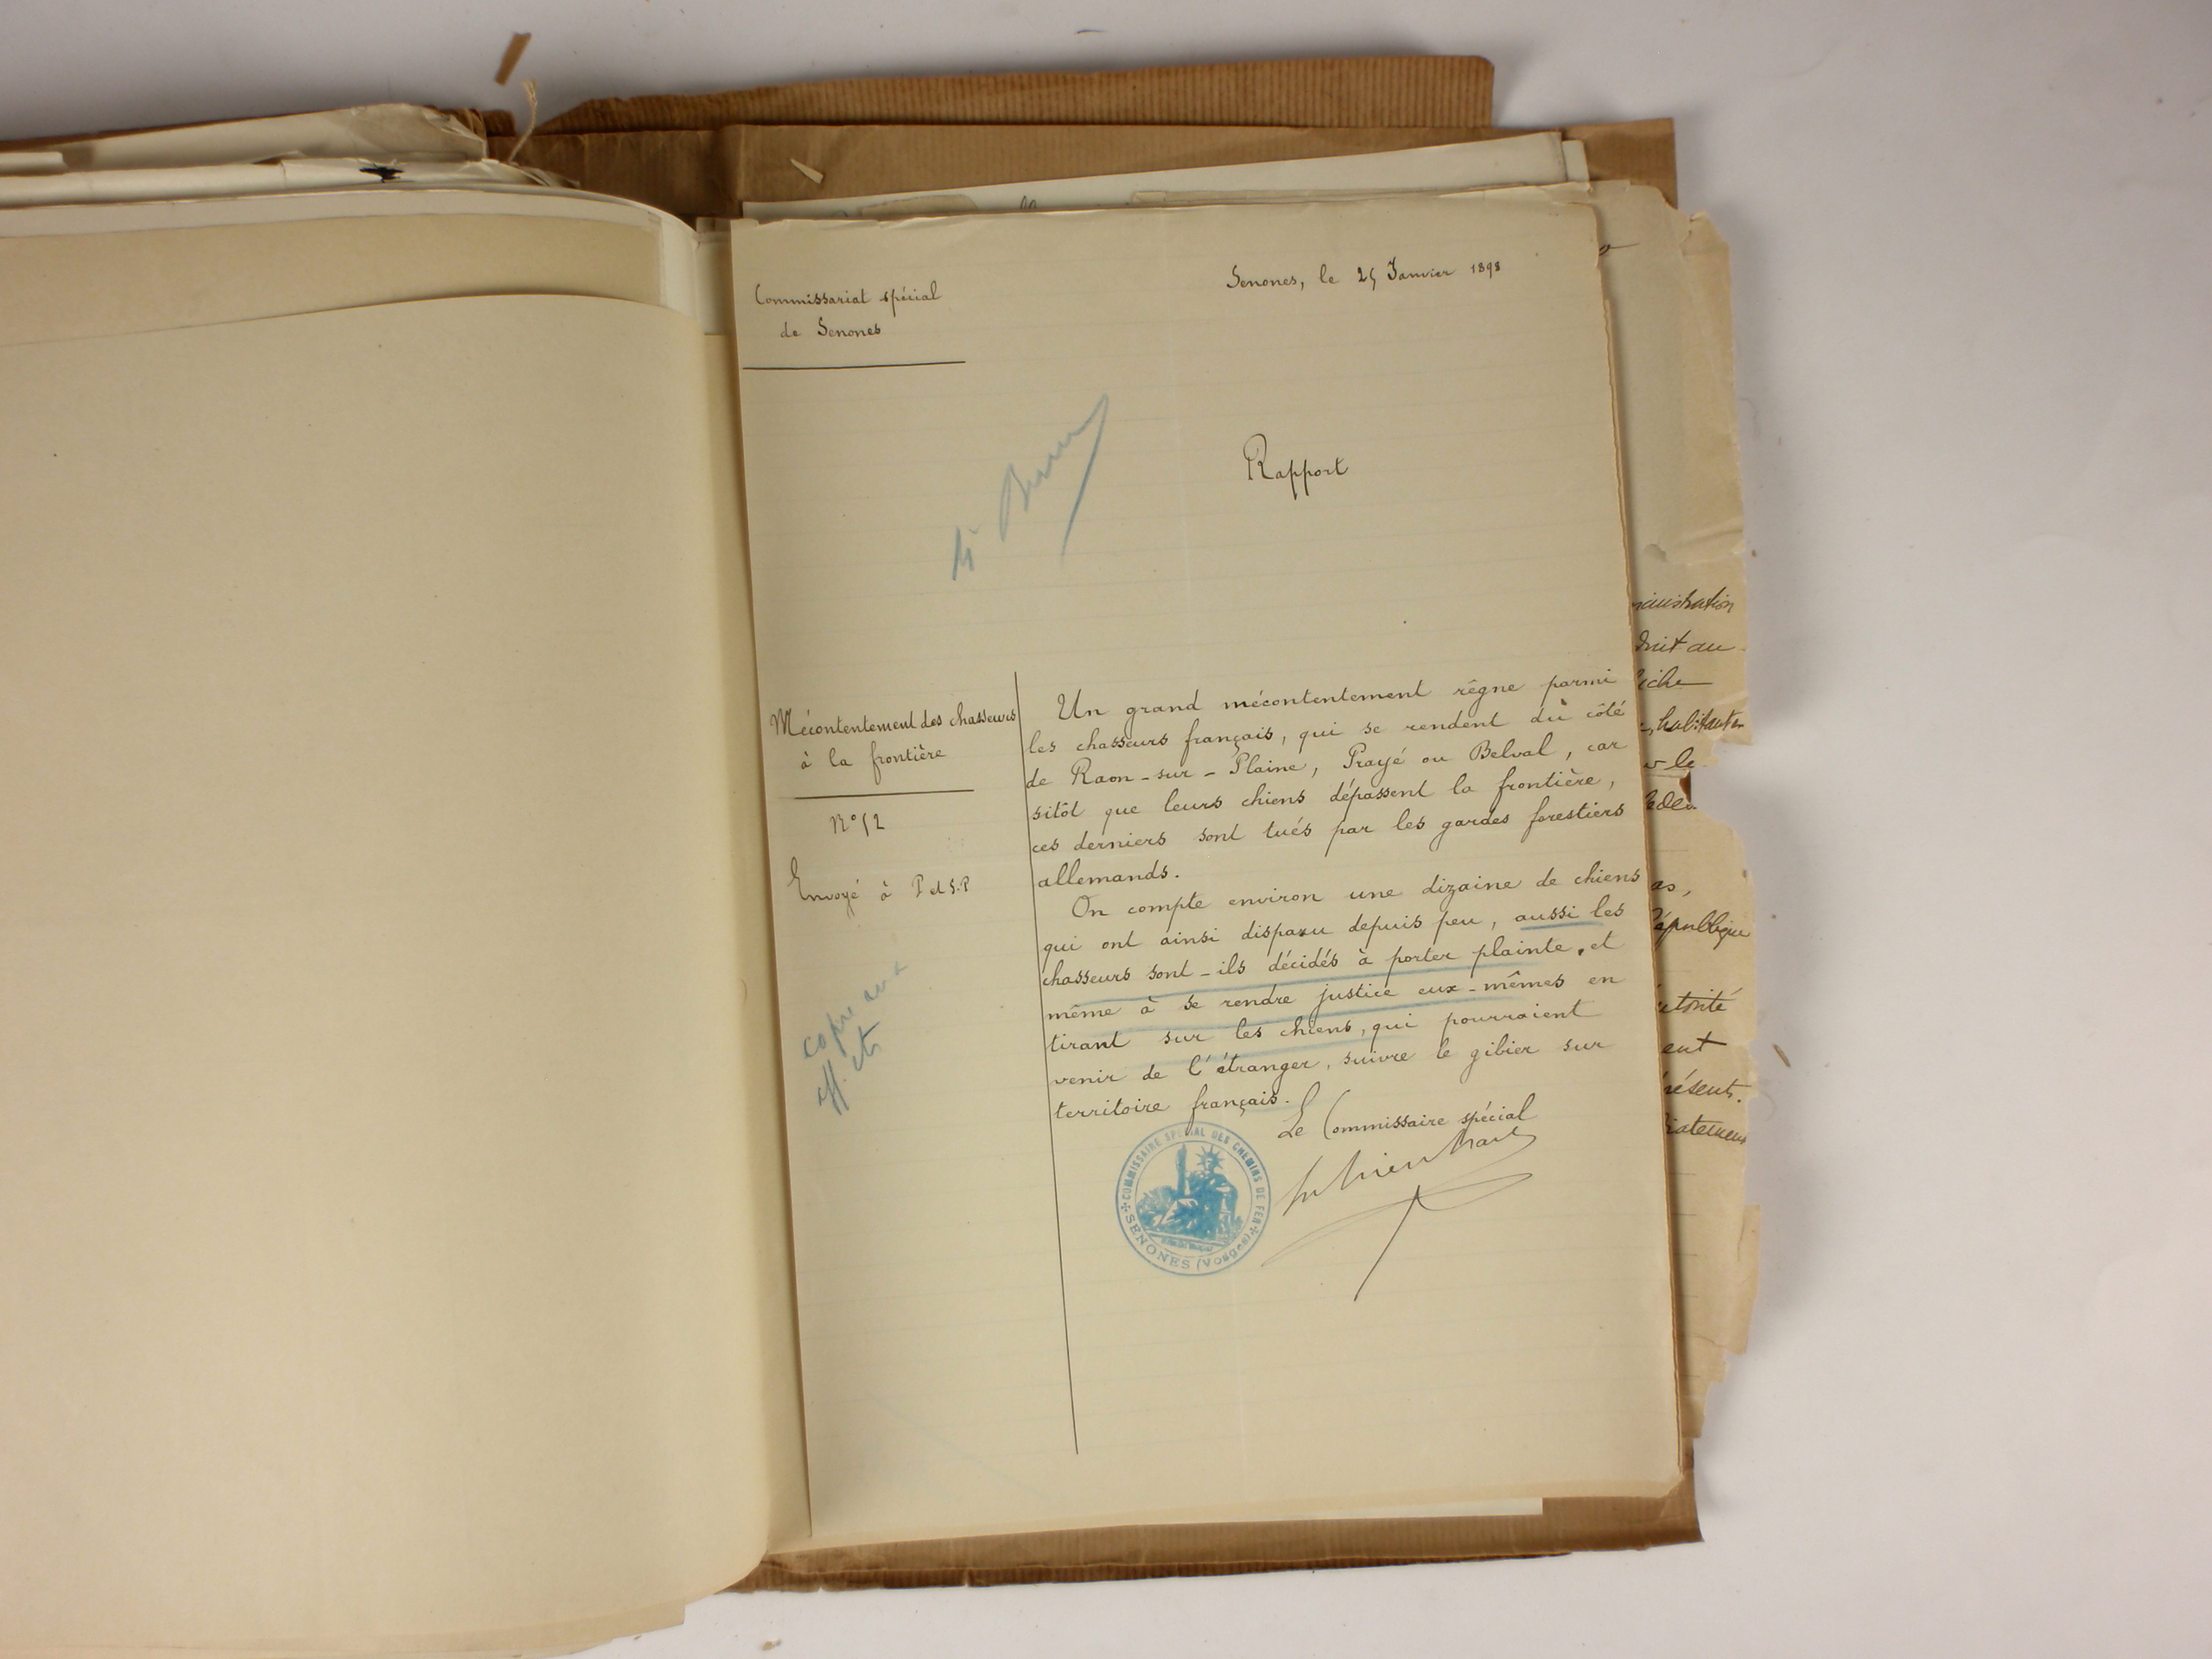 Commissariat spécial
de Senones
Senones, le 25 Janvier 1898
Rapport
Mécontentement des chasseurs
à la frontière
N° 52
Envoyé à P et S.P
copie aux
aff. etr
Un grand mécontentement règne parmi
les chasseurs français, qui se rendent du côté
de Raon-sur-Plaine, Prayé ou Belval, car
sitôt que leurs chiens dépassent la frontière,
ces derniers sont tués par les gardes forestiers
allemands.
On compte environ une dizaine de chiens
qui ont ainsi disparu depuis peu, aussi les
chasseurs sont-ils décidés à porter plainte, et
même à se rendre justice eux-mêmes en
tirant sur les chiens, qui pourraient
venir de l'étranger, suivre le gibier sur
territoire français.
Le Commissaire spécial
COMMISSAIRE SPÉCIAL DES CHEMINS DE FER
SENONES (Vosges)